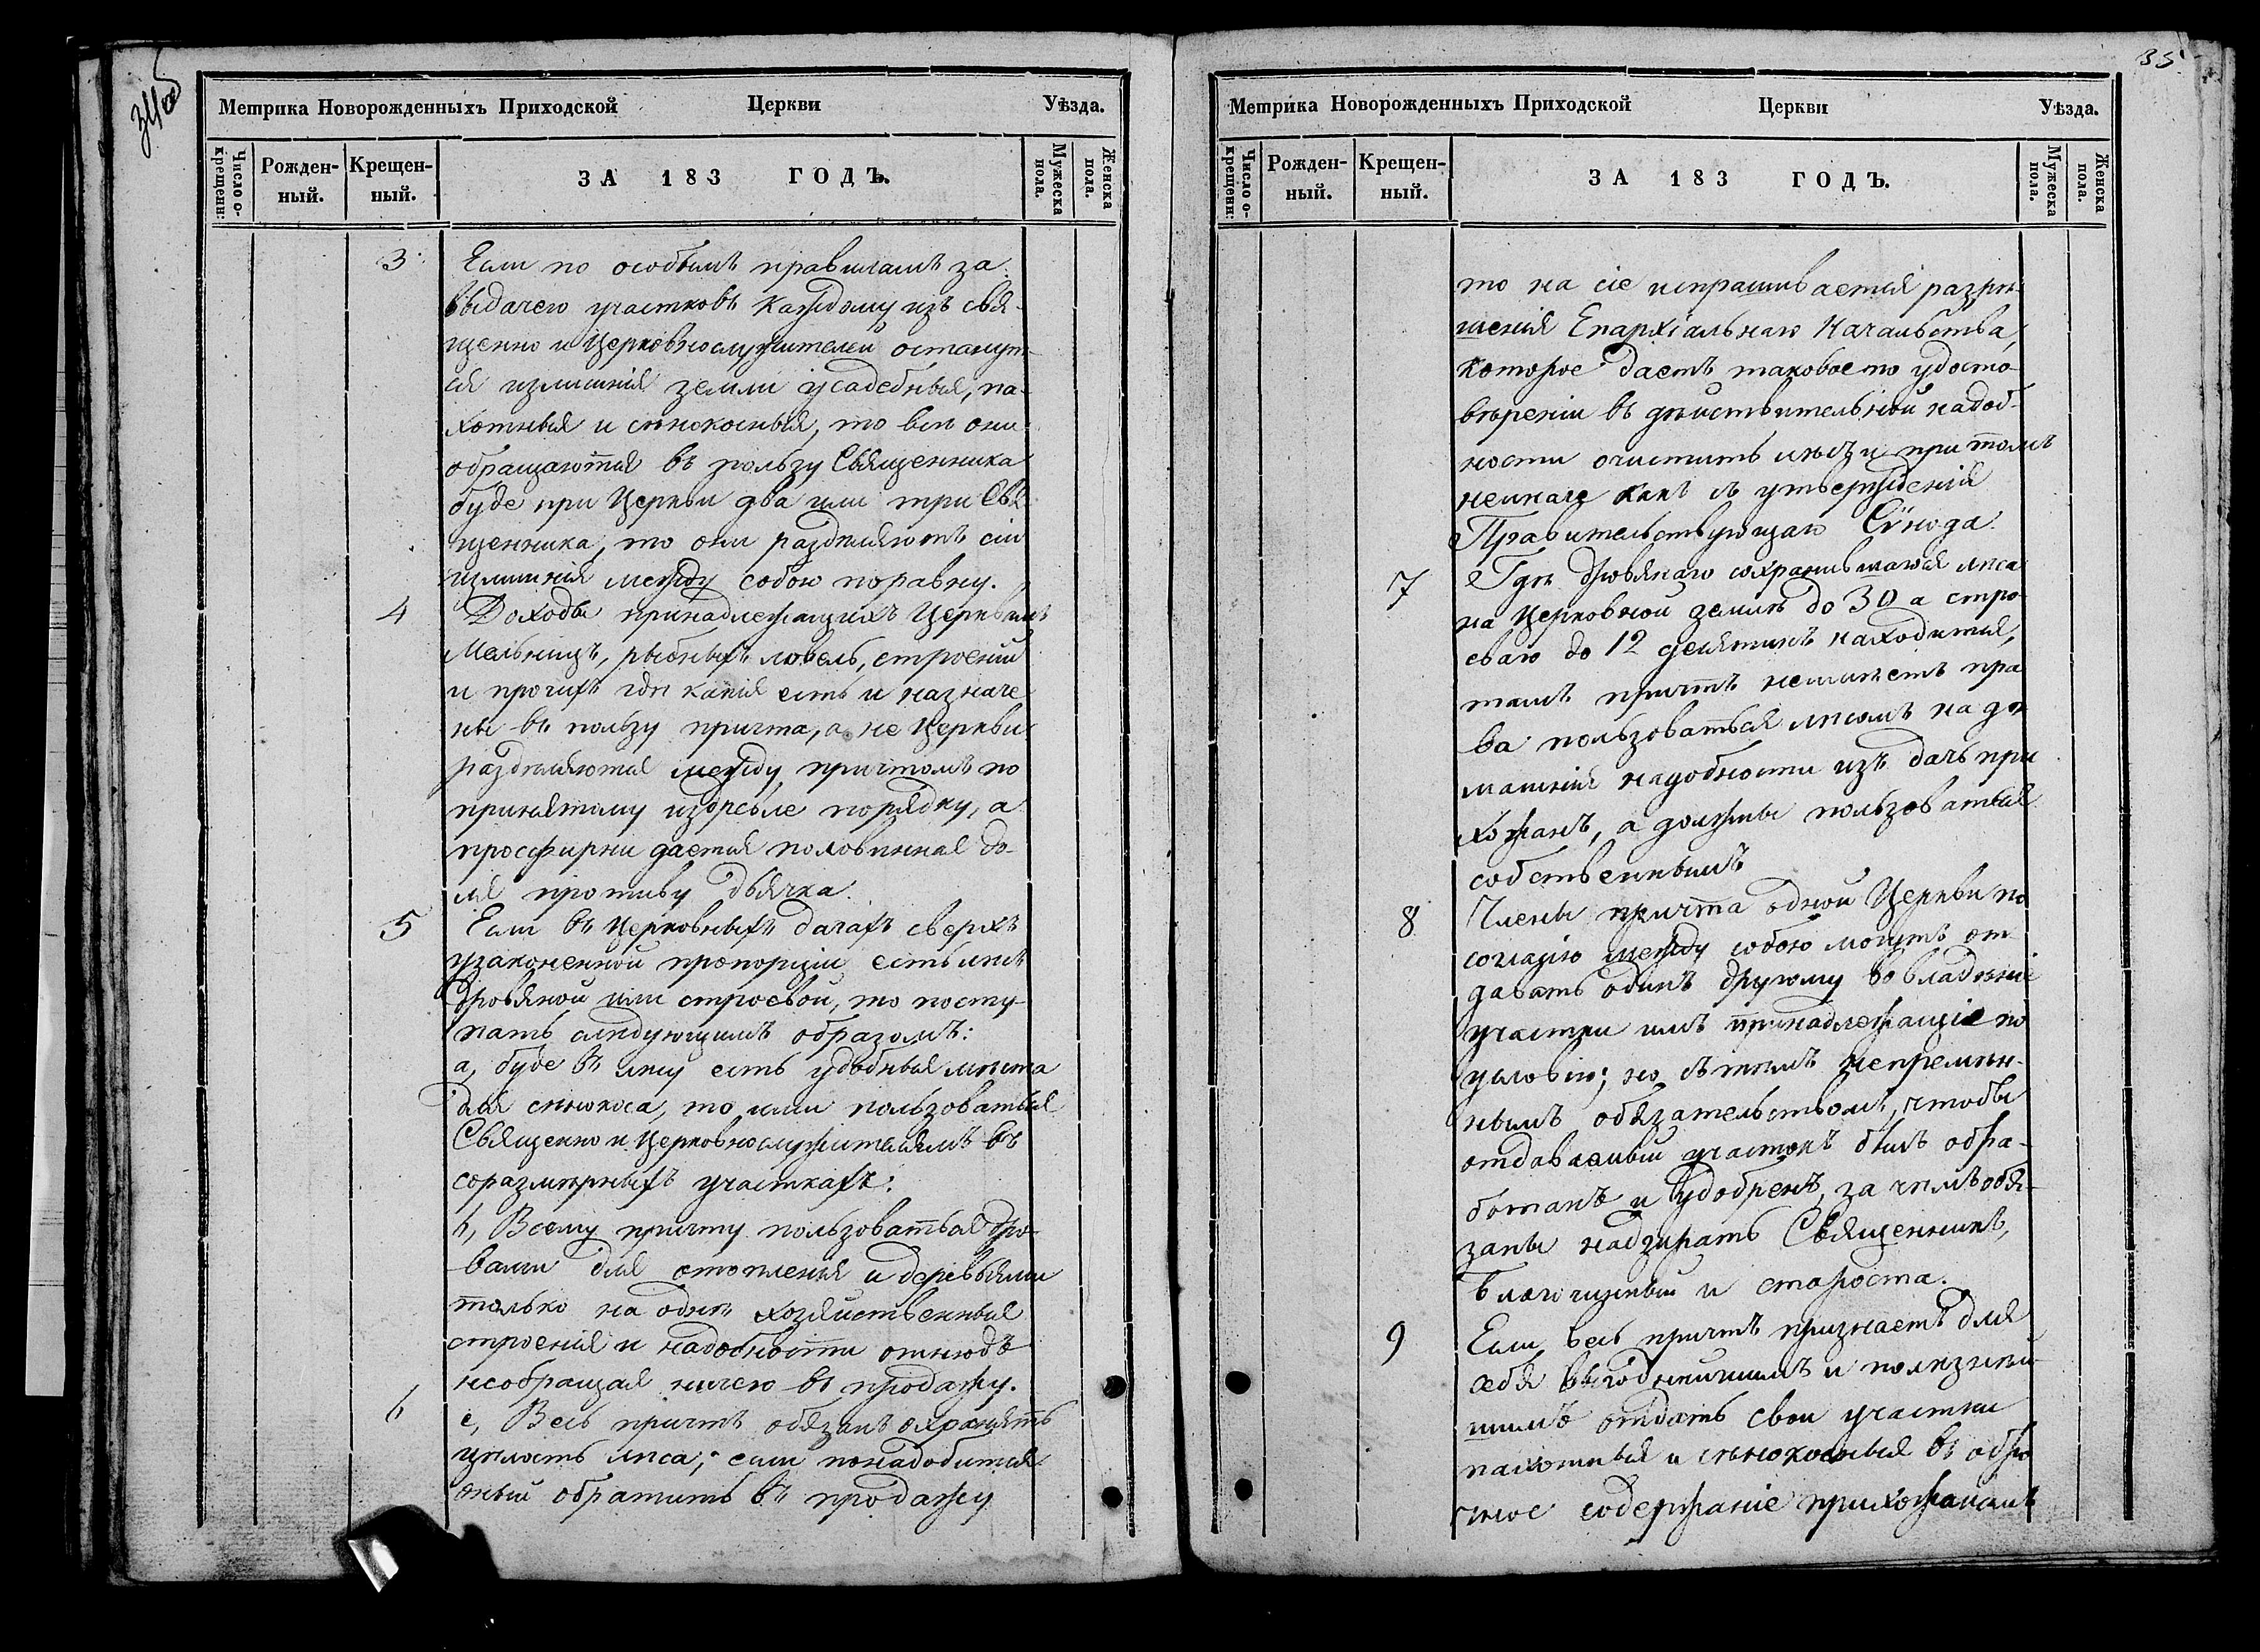 34об
Метрика Новорожденныхъ Приходской Церкви Уѣзда.
Число о-крещени: Рожден-ный. Крещен-ный. ЗА 183 ГОДЪ. Мужеска пола. Женска пола.
3 Если по особымъ правиламъ за
выдачею участковъ каждому изъ свя-
щенно и церковнослужителей останут-
ся излишнія земли усадебныя, па-
хотныя и сѣнокосныя, то всѣ они
обращаются въ пользу Священника
буде при Церкви два или три Свя
щенника, то они раздѣляютъ сіи
излишнія между собою поравну.
4 Доходы принадлежащихъ Церквамъ
Мельницъ, рыбныхъ ловель, строений
и прочихъ гдѣ какія есть и назначе
ны въ пользу причта, а не Церкви
раздѣляются между причтомъ по
принятому издревле порядку, а
просфирни дается половинная до-
ля противу дьячка.
5 Если въ церковныхъ дачахъ сверхъ
узаконенной пропорціи есть лѣсъ
дровяной или строевой, то посту-
пать слѣдующимъ образомъ:
а, буде въ лѣсу есть удобныя мѣста
для сѣнокоса, то ими пользоваться
Священно и Церковнослужителямъ въ
соразмѣрныхъ участкахъ:
b, Всему причту пользоваться дро-
вами для отопленія и деревьями
только на однѣ хозяйственныя
строенія и надобности отнюдь
необращая ничего въ продажу.
6 с, Весь причтъ обязанъ охранять
цѣлость лѣса; если понадобится
оный обратить въ продажу
35
Метрика Новорожденныхъ Приходской Церкви Уѣзда.
Число о-крещени: Рожден-ный. Крещен-ный. ЗА 183 ГОДЪ. Мужеска пола. Женска пола.
то на сіе испрашивается разрѣ-
шенія Епархіальнаго Начальства,
которое даетъ таковое по удосто-
вѣреніи въ дѣйствительной надоб-
ности очистить лѣсъ и притомъ
неиначе какъ съ утвержденія
Правительствующаго Сѵнода.
7 Гдѣ дровянаго сохранившагося лѣса
на Церковной землѣ до 30 а стро-
еваго до 12 десятинъ находится,
тамъ причтъ неимѣетъ пра
ва пользоваться лѣсомъ на до
машнія надобности изъ дачь при
хожанъ, а должны пользоваться
собственнымъ
8 Члены причта одной Церкви по
согласію между собою могутъ от
давать одинъ другому во владѣніе
участки имъ принадлежащіе по
условію; но съ тѣмъ непремѣн-
нымъ обязательствомъ, чтобы
отдаваемый участокъ былъ обра-
ботанъ и удобренъ, за чѣмъ обя-
заны надзирать Священникъ,
Благочинный и староста.
9 Если весь причтъ признаетъ для
себя выгоднѣйшимъ и полезнѣй
шимъ отдать свои участки
пахотныя и сѣнокосныя въ обро
чное содержаніе прихожанамъ